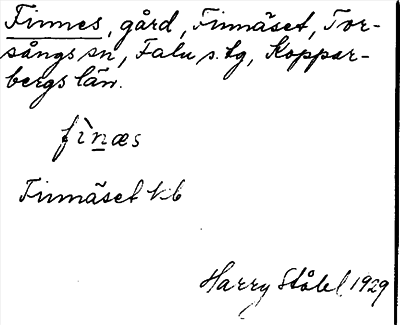 Finnes, gård, Finnäset, Tor-
sångs sn, Falu s. tg, Koppar-
bergs län.
fìnæs
Finnäset 1:6
Harry Ståhl 1929